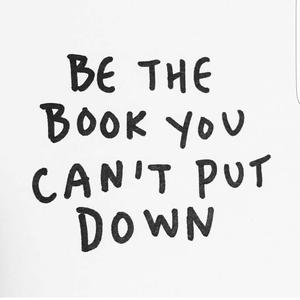 BE THE
BOOK YOU
CAN'T PUT
DOWN